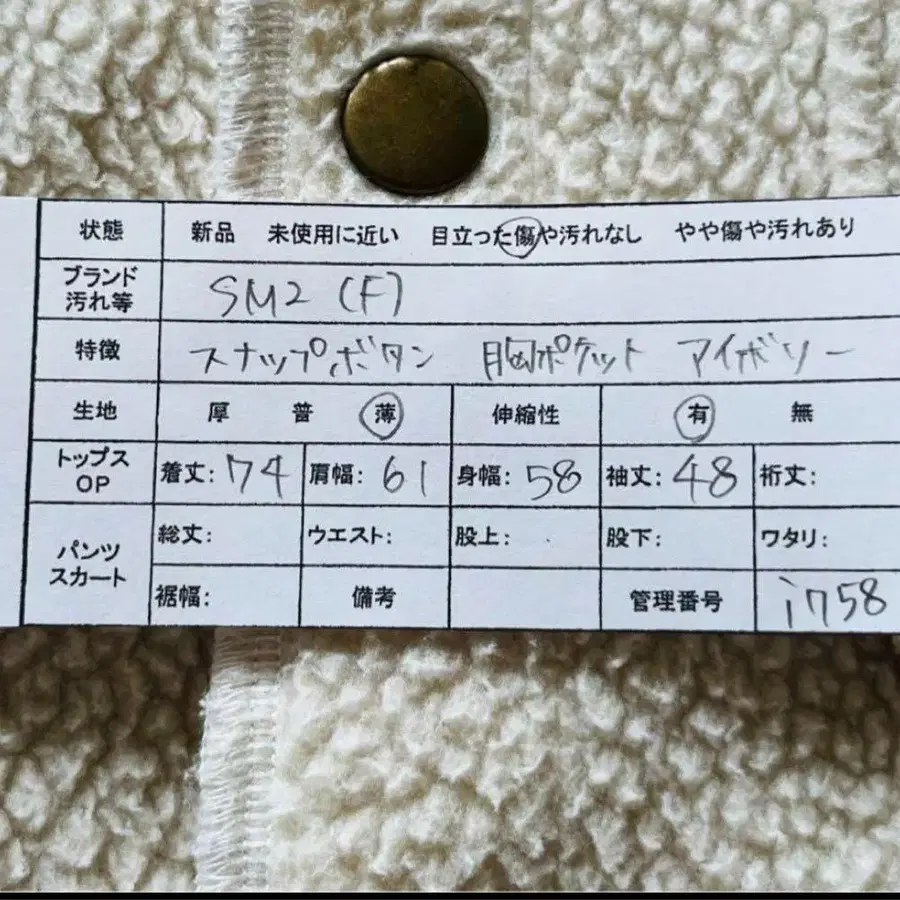 状態 新品 未使用に近い 目立った傷や汚れなし やや傷や汚れあり
ブランド SM2 (F)
汚れ等
特徴 スナップボタン 胸ポケット アイボリー
生地 厚 普 薄 伸縮性 有 無
トップス OP 着丈: 74 肩幅: 61 身幅: 58 袖丈: 48 裄丈:
パンツ スカート 総丈: ウエスト: 股上: 股下: ワタリ:
裾幅: 備考 管理番号 i758